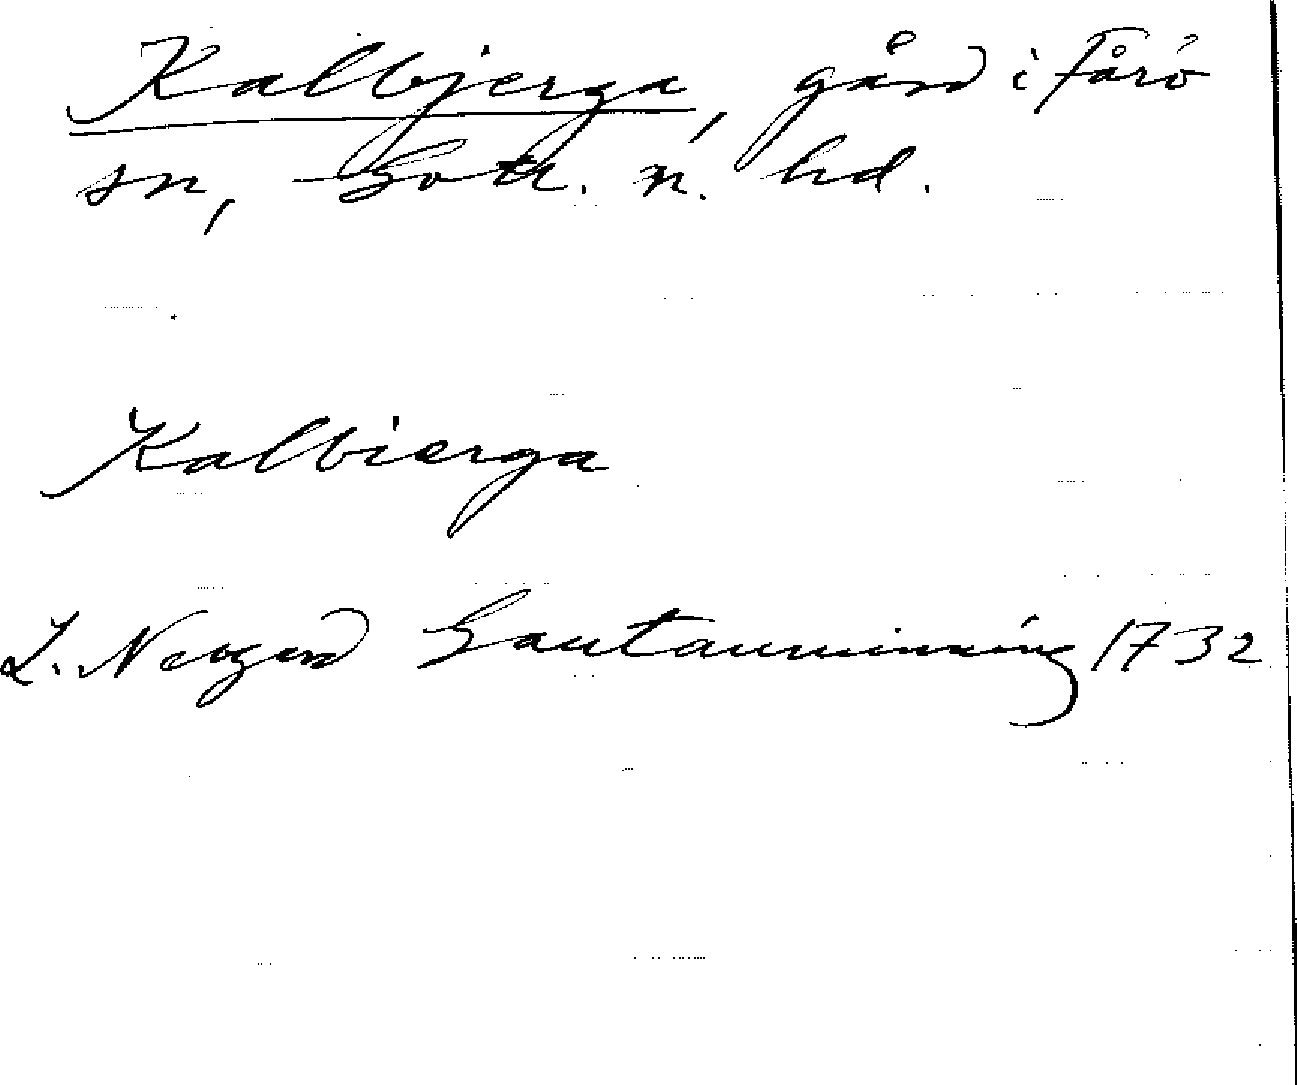 Kalbjerga, gård i Fårö
sn, Gotl. n. hd.
Kalbierga
L. Neogard Gautauminning 1732